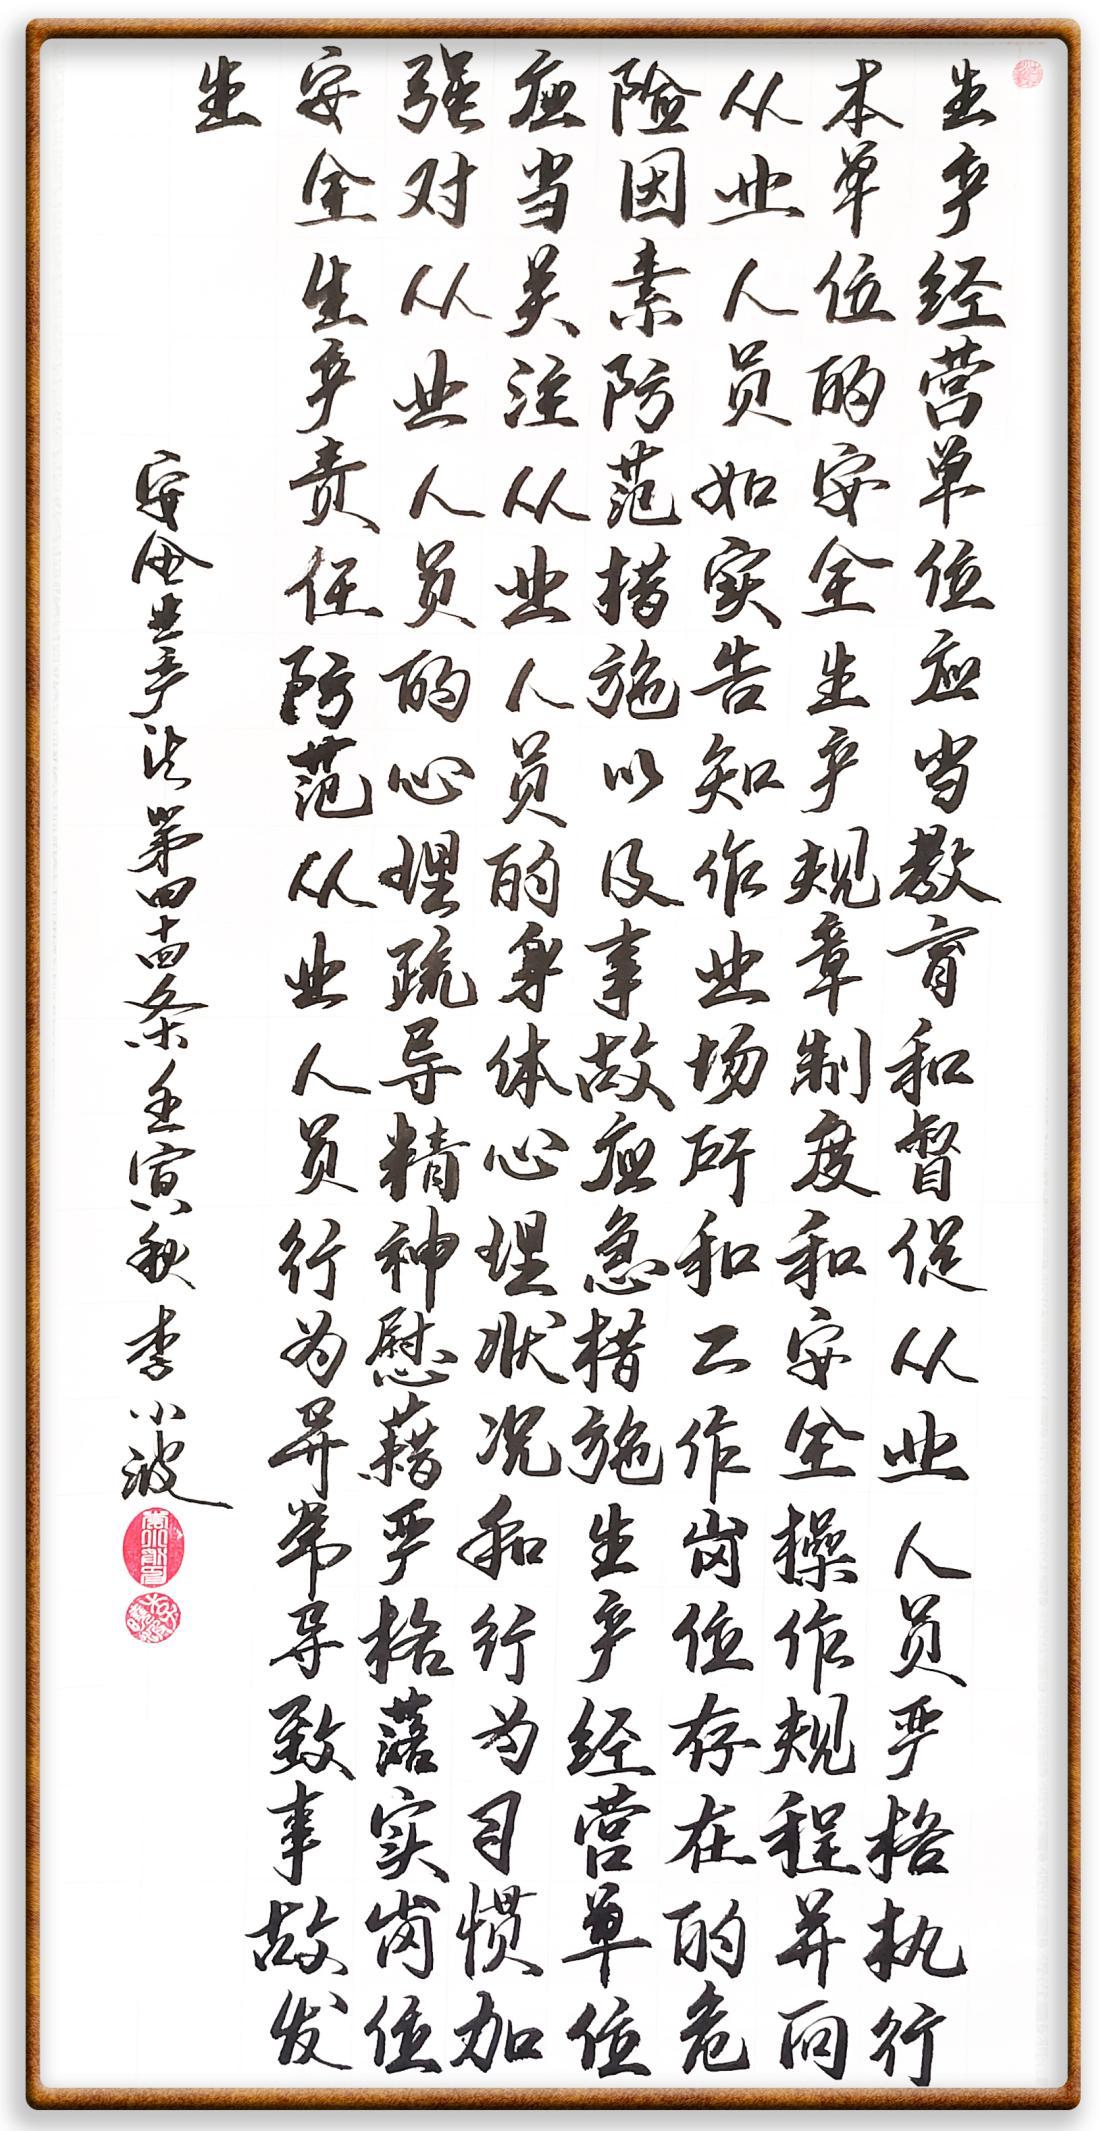 生产经营单位应当教育和督促从业人员严格执行
本单位的安全生产规章制度和安全操作规程并向
从业人员如实告知作业场所和工作岗位存在的危
险因素防范措施以及事故应急措施生产经营单位
应当关注从业人员的身体心理状况和行为习惯加
强对从业人员的心理疏导精神慰藉严格落实岗位
安全生产责任防范从业人员行为异常导致事故发
生
安全生产法第四十四条壬寅秋李小波